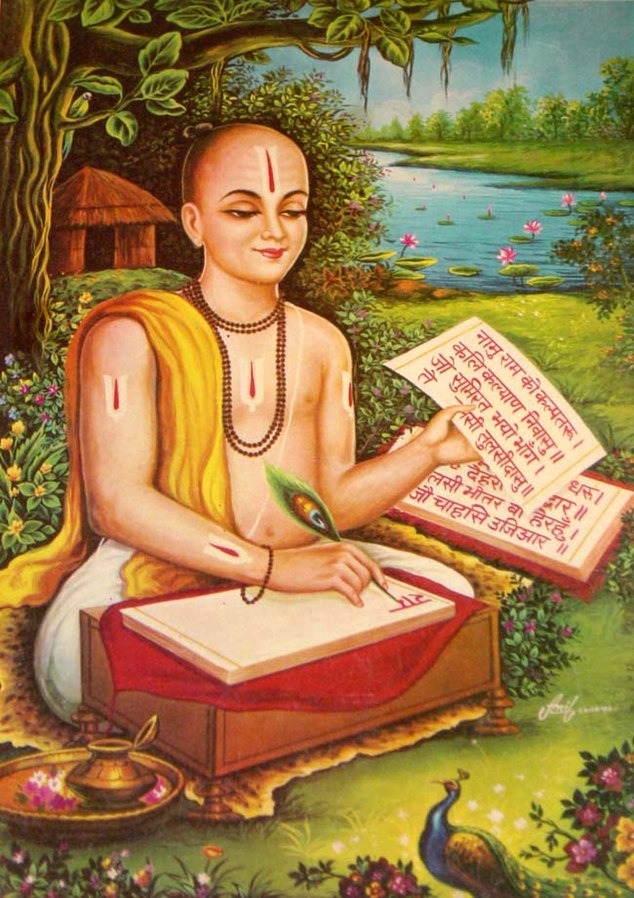 नामु राम को कल्पतरू।
कलि कल्याण निवासु॥
जो सुमिरत भयो भाँग।
तें सी तुलसीदासु॥
धरू।
देहरी ार॥
लसी भीतर बा हेरहुँ।
जौ चाहासि उजिआर॥
रा